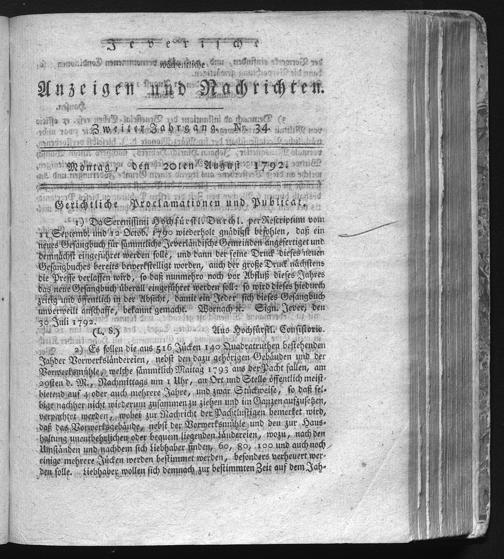 Jeverische
wöchentliche
Anzeigen und Nachrichten.
Zweiter Jahrgang. Nr. 34.
Montag, den 20ten August 1792.
Gerichtliche Proclamationen und Publicat,
1) Da Serenissimi Hochfürstl. Durchl. per Rescriptum vom
11 Septemb. und 12 Octob. 1790 wiederholt gnädigst befohlen, daß ein
neues Gesangbuch für sämmtliche Jeverländische Gemeinden angefertiget und
demnächst eingeführet werden solle, und dann der feine Druck dieses neuen
Gesangbuches bereits bewerkstelliget worden, auch der große Druck nächstens
die Presse verlassen wird, so daß nunmehr noch vor Abfluß dieses Jahres
das neue Gesangbuch überall eingeführet werden soll: so wird dieses hiedurch
zeitig und öffentlich in der Absicht, damit ein Jeder sich dieses Gesangbuch
unverweilt anschaffe, bekannt gemacht. Wornach ꝛc. Sign. Jever, den
30 Juli 1792.
(L. S.) Aus Hochfürstl. Consistorio.
2) Es sollen die aus 516 Jücken 140 Quadratruthen bestehenden
Jahder Vorwerksländereien, nebst den dazu gehörigen Gebäuden und der
Vorwerksmühle, welche sämmtlich Maitag 1793 aus der Pacht fallen, am
29sten d. M., Nachmittags um 1 Uhr, an Ort und Stelle öffentlich meist-
bietend auf 4 oder auch mehrere Jahre, und zwar Stückweise, so daß sel-
bige nachher nicht wiederum zusammen zu ziehen und im Ganzen aufzusetzen,
verpachtet werden, wobei zur Nachricht der Pachtlustigen bemerket wird,
daß das Vorwerksgebäude, nebst der Vorwerksmühle und den zur Haus-
haltung unentbehrlichen oder bequem liegenden Ländereien, wozu, nach den
Umständen und nachdem sich Liebhaber finden, 60, 80, 100 und auch noch
einige mehrere Jücken werden bestimmet werden, besonders verheuert wer-
den solle. Liebhaber wollen sich demnach zur bestimmten Zeit auf dem Jah-